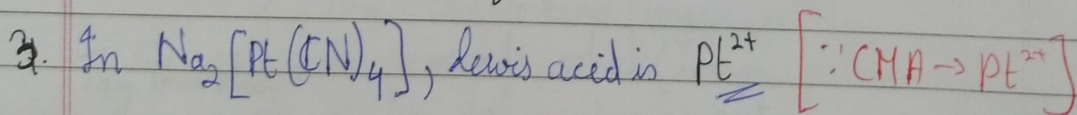 3. In Na₂[Pt(CN)₄], Lewis acid is Pt²⁺ [∵ CMA → Pt²⁺]